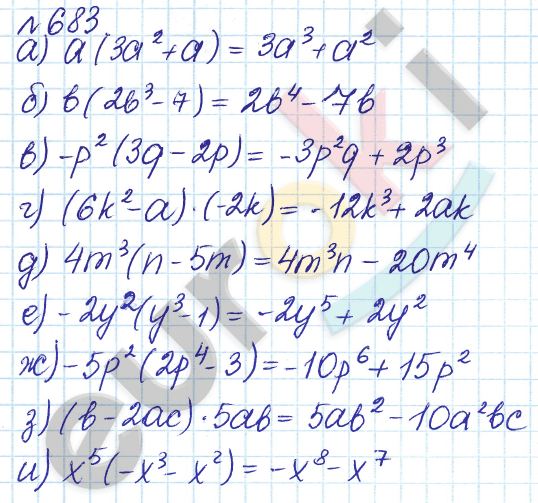 №683
а) a(3a²+a) = 3a³+a²
б) b(2b³-7) = 2b⁴-7b
в) -p²(3q-2p) = -3p²q+2p³
г) (6k²-a)·(-2k) = -12k³+2ak
д) 4m³(n-5m) = 4m³n-20m⁴
е) -2y²(y³-1) = -2y⁵+2y²
ж) -5p²(2p⁴-3) = -10p⁶+15p²
з) (b-2ac)·5ab = 5ab²-10a²bc
и) x⁵(-x³-x²) = -x⁸-x⁷
euroki